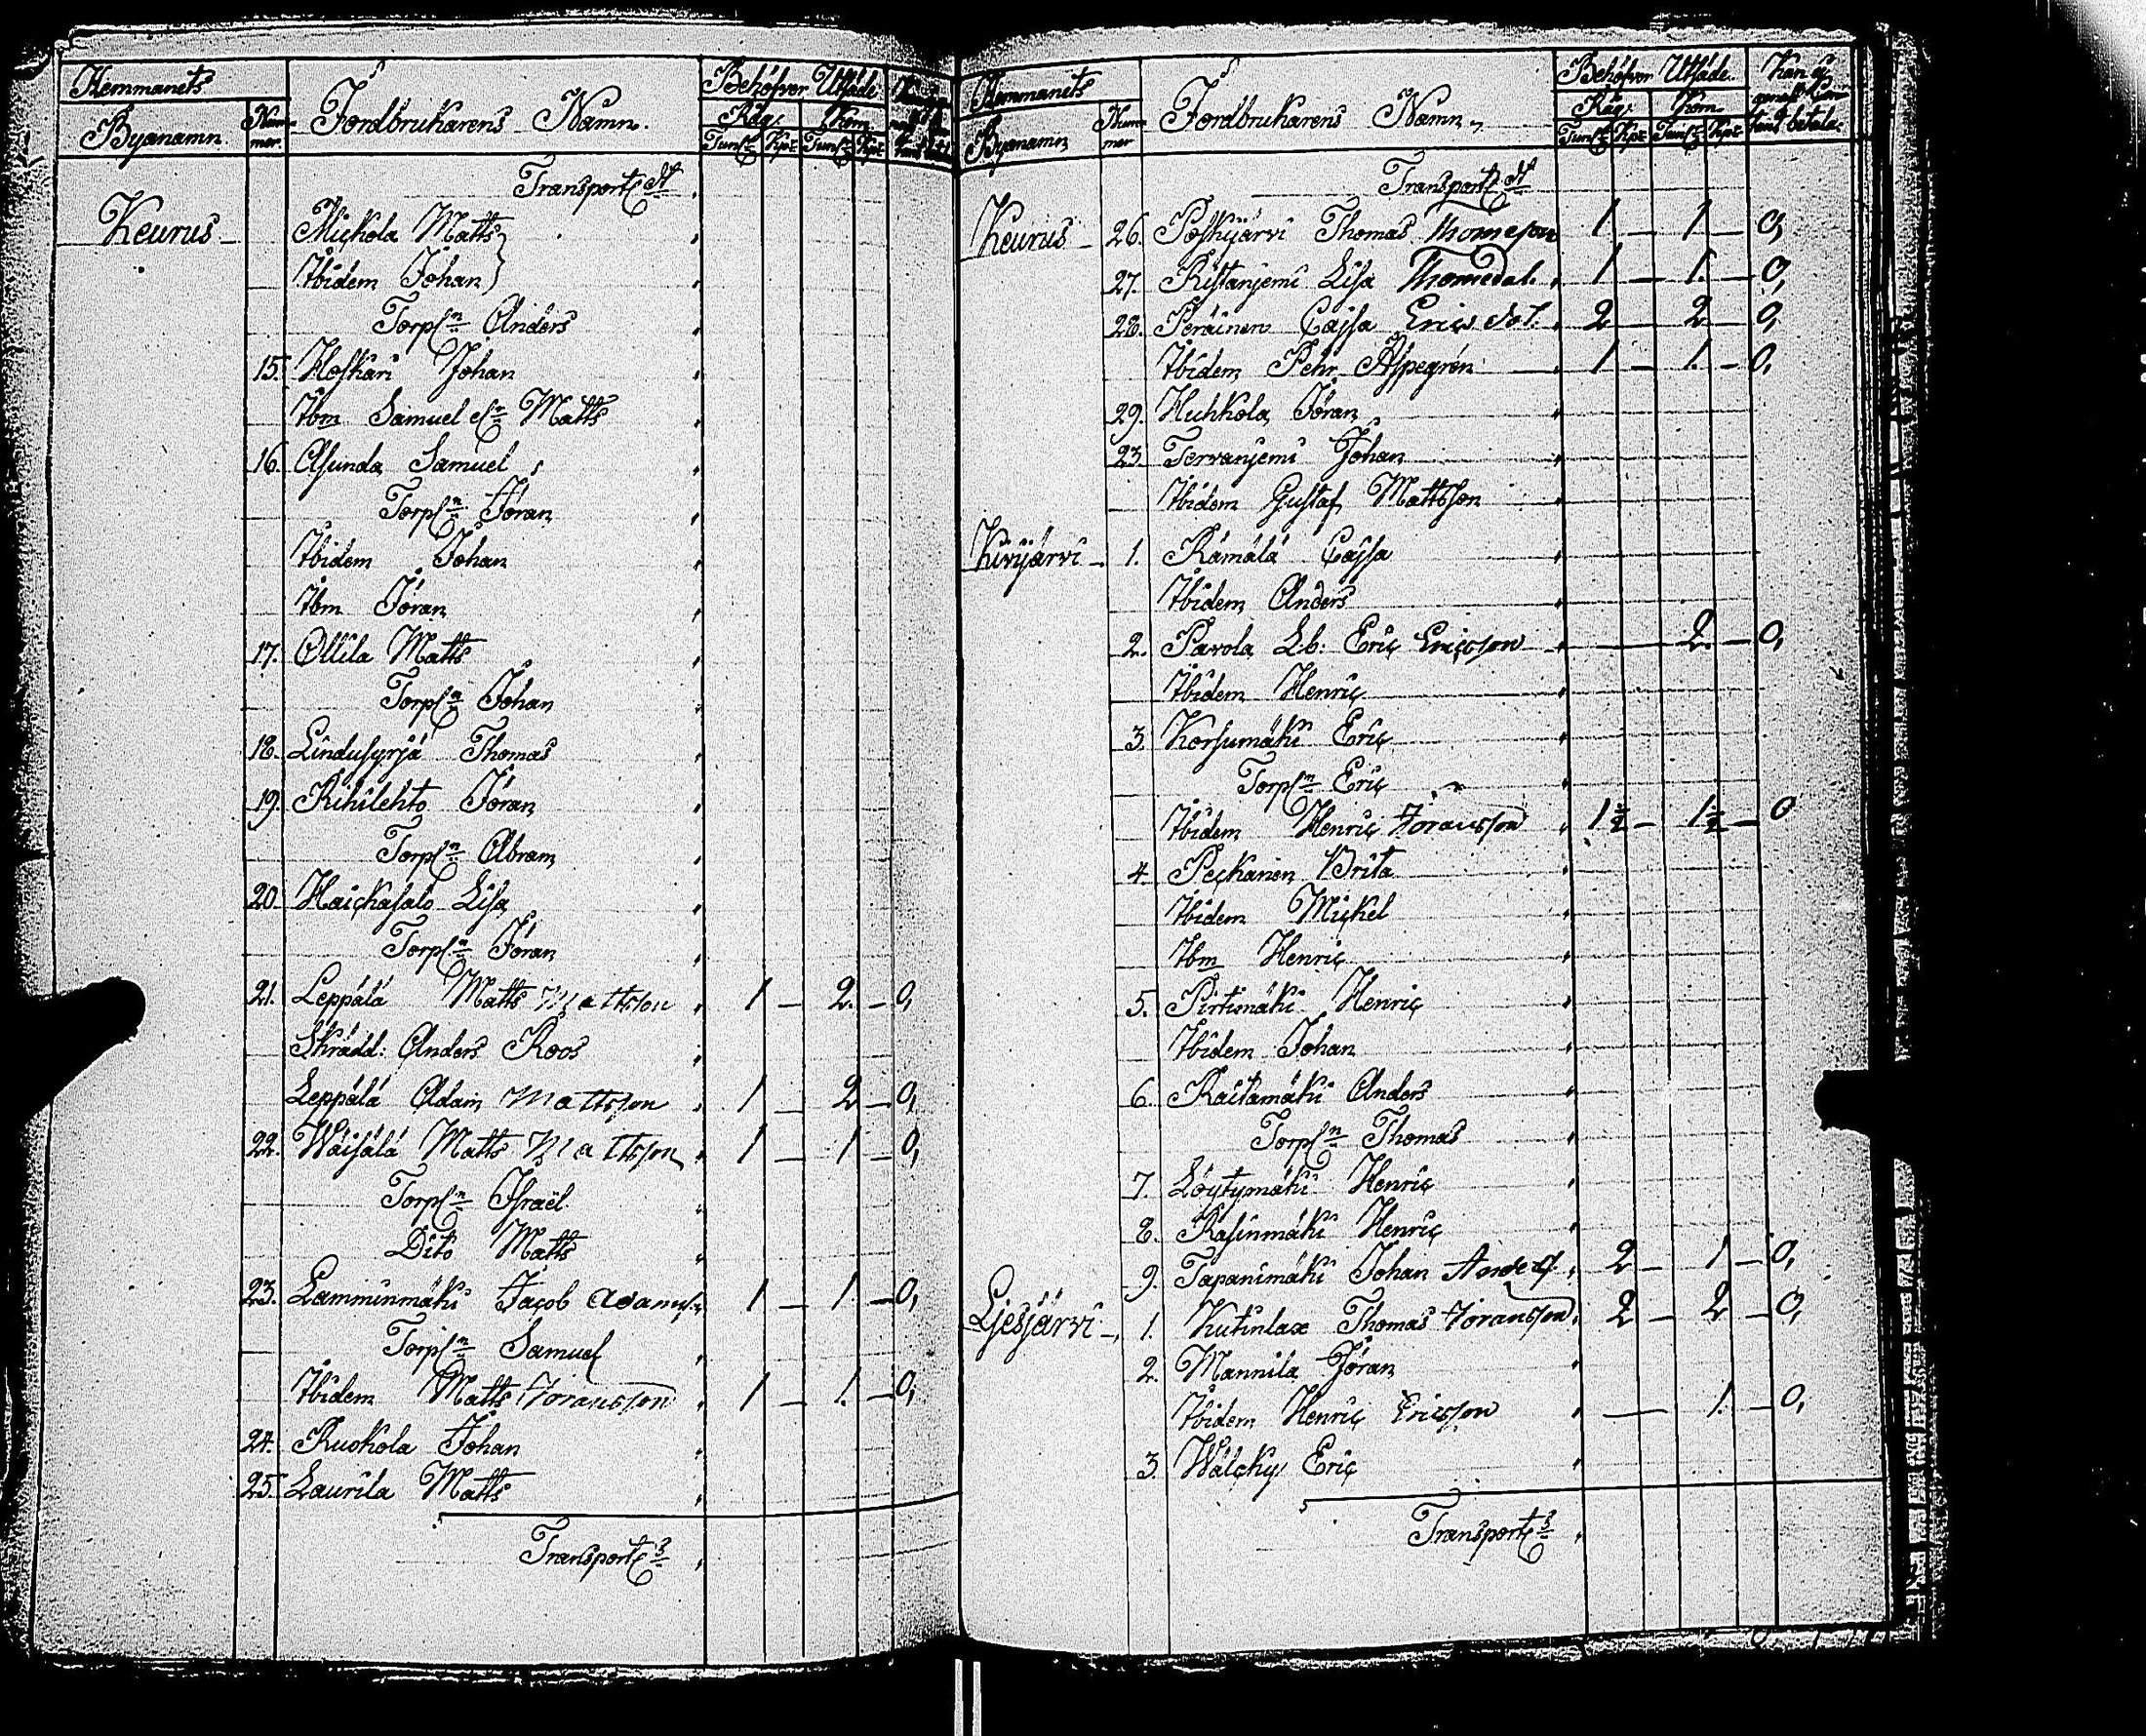 Hemmanets
Byanamn. Num-mer. Jordbrukarens Namn. Behöfver Utsäde.
Råg. Korn.
Tunr. Kpr. Tunr. Kpr.
Transport
Keurus Mickola Matts
Ibidem Johan
Torpn Anders
15. Hoskari Johan
Ibm Samuel Matts
16. Asunda Samuel
Torpn Jöran
Ibidem Johan
Ibm Jöran
17. Ollila Matts
Torpn Johan
18. Lindusyrjä Thomas
19. Rihilehto Jöran
Torpn Abram
20. Haickasalo Lisa
Torpn Jöran
21. Leppälä Matts Mattsson 1 – 2. – 0,
Skrädd: Anders Roos
Leppälä Adam Mattsson 1 – 2 – 0,
22. Wäisälä Matts Mattsson 1 – 1 – 0,
Torpn Israël
Dito Matts
23. Lamminmäki Jacob Adams. 1 – 1 – 0,
Torpn Samuel
Ibidem Matts Jöransson 1 – 1. – 0,
24. Ruokola Johan
25. Laurila Matts
Transport
Hemmanets
Byanamn Num-mer Jordbrukarens Namn Behöfver Utsäde. Kan ej genast kontant betala.
Råg. Korn.
Tunr. Kpr. Tunr. Kpr.
Transport
Keurus 26. Poskijärvi Thomas Thomeson 1 – 1 – 0,
27. Ristanjemi Lisa Thomedot. 1 – 1. – 0,
28. Peräinen Cajsa Erics dot. 2 – 2 – 0,
Ibidem Pehr Aspegrén 1 – 1. – 0,
29. Huhkola Jöran
23. Tervanjemi Johan
Ibidem Gustaf Mattsson
Kivijärvi 1. Rämälä Cajsa
Ibidem Anders
2. Pavola Lb: Eric Ericsson – 2. – 0,
Ibidem Henric
3. Korsumäki Eric
Torpn Eric
Ibidem Henric Jöransson 1½ – 1½ – 0
4. Peckanen Brita
Ibidem Mickel
Ibm Henric
5. Pirtimäki Henric
Ibidem Johan
6. Raitamäki Anders
Torpn Thomas
7. Löytymäki Henric
8. Rasinmäki Henric
9. Tapanimäki Johan Anders. 2 – 1 – 0,
Ljesjärvi 1. Kutinlax Thomas Jöransson 2 – 2 – 0,
2. Mannila Jöran
Ibidem Henric Ericsson – 1. – 0,
3. Wälcky Eric
Transport